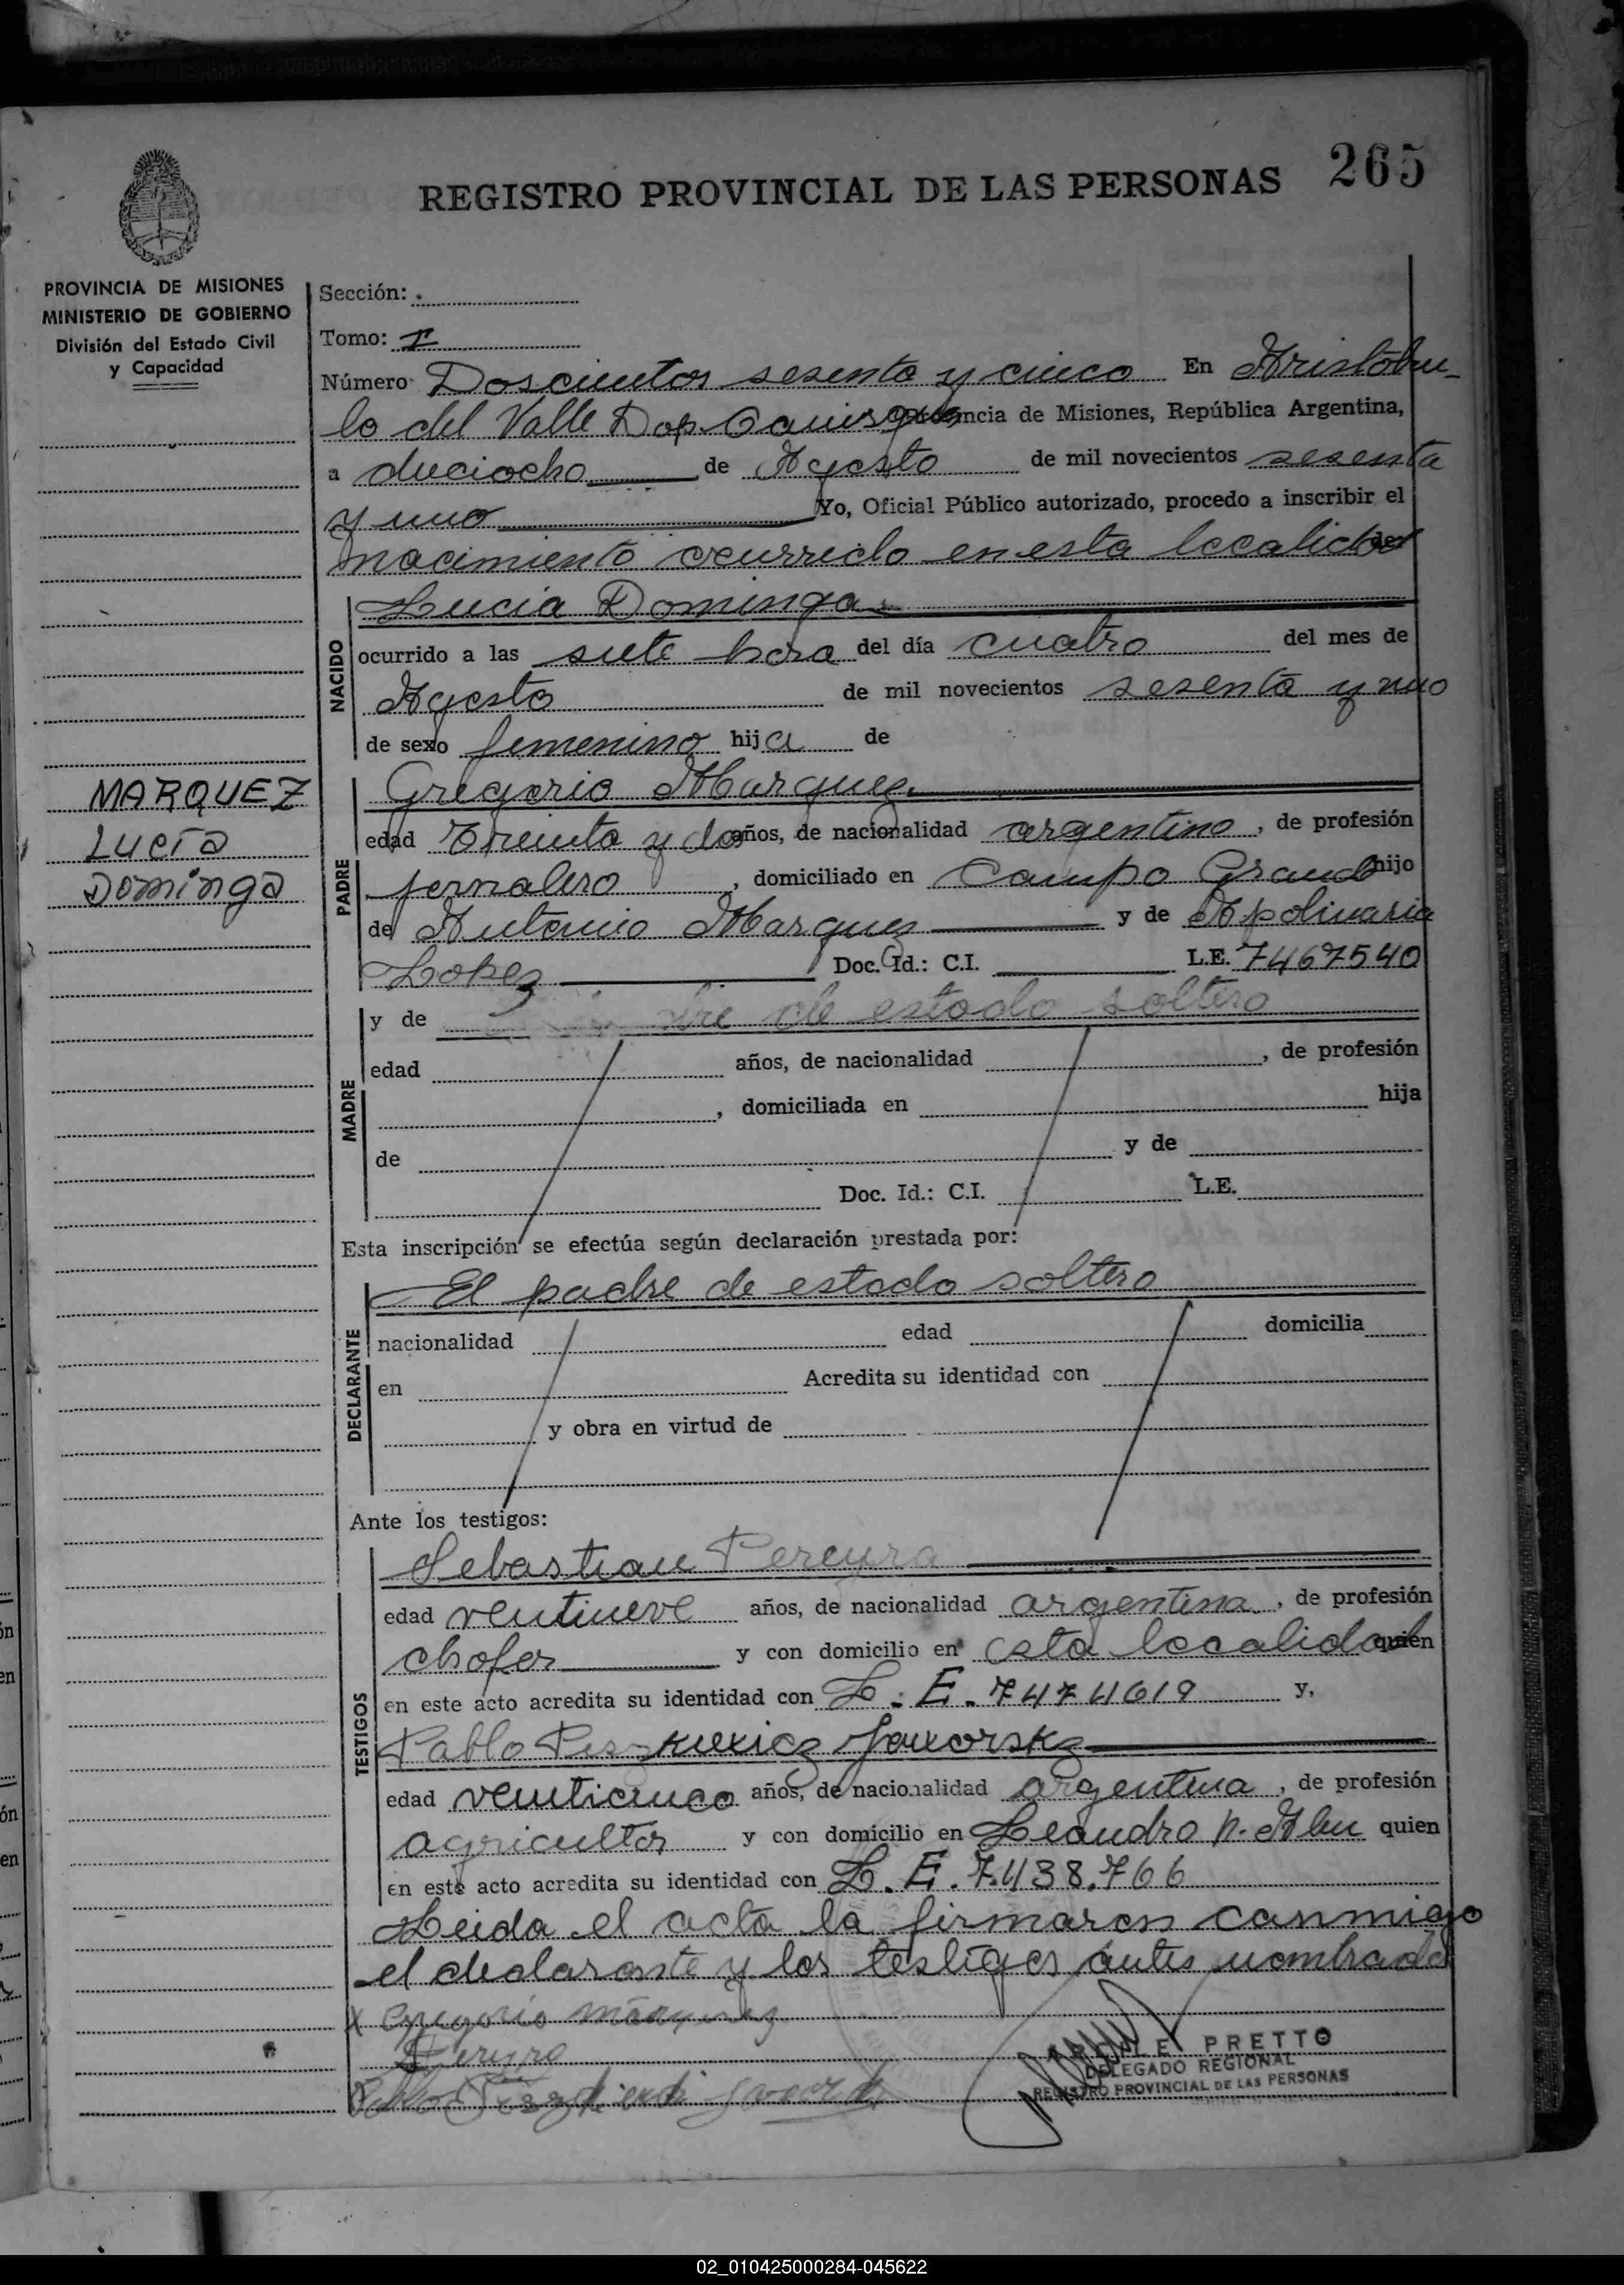 REGISTRO PROVINCIAL DE LAS PERSONAS 265
PROVINCIA DE MISIONES
MINISTERIO DE GOBIERNO
División del Estado Civil
y Capacidad
MARQUEZ
Lucía
Dominga
Sección:
Tomo: I
Número Doscientos sesenta y cinco En Aristobu-
lo del Valle Dop. Cainguas Provincia de Misiones, República Argentina,
a dieciocho de Agosto de mil novecientos sesenta
y uno Yo, Oficial Público autorizado, procedo a inscribir el
nacimiento ocurrido en esta localidad de
NACIDO
Lucia Dominga
ocurrido a las siete hora del día cuatro del mes de
Agosto de mil novecientos sesenta y uno
de sexo femenino hija de
PADRE
Gregorio Marquez
edad treinta y dos años, de nacionalidad argentino, de profesión
jornalero, domiciliado en Campo Grande hijo
de Antonio Marquez y de Apolinaria
Lopez Doc. Id.: C.I. L.E. 7467540
MADRE
y de de estado soltero
edad años, de nacionalidad , de profesión
, domiciliada en hija
de y de
Doc. Id.: C.I. L.E.
Esta inscripción se efectúa según declaración prestada por:
DECLARANTE
El padre de estado soltero
nacionalidad edad domicilia
en Acredita su identidad con
y obra en virtud de
Ante los testigos:
TESTIGOS
Sebastian Pereyra
edad ventinueve años, de nacionalidad argentina, de profesión
chofer y con domicilio en esta localidad quien
en este acto acredita su identidad con L.E. 7474619 y,
Pablo Jaworski
edad veinticinco años, de nacionalidad argentina, de profesión
agricultor y con domicilio en Leandro N. Alen quien
en este acto acredita su identidad con L.E. 7.438.766
Leida el acta la firmaron conmigo
el declarante y los testigos antes nombrado
x Gregorio Marquez
Pereyra
Pablo
PRETTO
DELEGADO REGIONAL
REGISTRO PROVINCIAL DE LAS PERSONAS
02_010425000284-045622